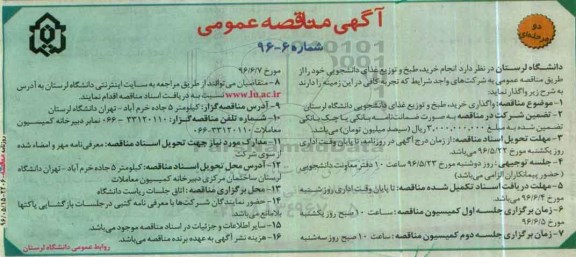 آگهی مناقصه عمومی
شماره ۶-۹۶
دو مرحله‌ای
دانشگاه لرستان در نظر دارد انجام خرید، طبخ و توزیع غذای دانشجویی خود را از
طریق مناقصه عمومی به شرکت‌های واجد شرایط که تجربه کافی در این زمینه را دارند
به شرح زیر واگذار نماید:
۱- موضوع مناقصه: واگذاری خرید، طبخ و توزیع غذای دانشجویی دانشگاه لرستان
۲- تضمین شرکت در مناقصه به صورت ضمانت‌نامه بانکی یا چک بانکی
تضمین شده به مبلغ ۳,۰۰۰,۰۰۰,۰۰۰ ریال (سیصد میلیون تومان) می‌باشد.
۳- مهلت تحویل اسناد مناقصه: از زمان درج آگهی در روزنامه تا پایان وقت اداری
روز یکشنبه مورخ ۹۶/۵/۲۲ می‌باشد.
۴- جلسه توجیهی: روز دوشنبه مورخ ۹۶/۵/۲۳ ساعت ۱۰ دفتر معاونت دانشجویی
(حضور پیمانکاران الزامی می‌باشد)
۵- مهلت دریافت اسناد تکمیل شده مناقصه: تا پایان وقت اداری روز شنبه
مورخ ۹۶/۶/۴ می‌باشد.
۶- زمان برگزاری جلسه اول کمیسیون مناقصه: ساعت ۱۰ صبح روز یکشنبه
مورخ ۹۶/۶/۵
۷- زمان برگزاری جلسه دوم کمیسیون مناقصه: ساعت ۱۰ صبح روز سه‌شنبه
مورخ ۹۶/۶/۷
۸- متقاضیان می‌توانند از طریق مراجعه به سایت اینترنتی دانشگاه لرستان به آدرس
www.lu.ac.ir نسبت به دریافت اسناد مناقصه اقدام نمایند.
۹- آدرس مناقصه‌گزار: کیلومتر ۵ جاده خرم آباد - تهران دانشگاه لرستان
۱۰- شماره تلفن مناقصه‌گزار: ۳۳۱۲۰۱۱۰ - ۰۶۶ نمابر دبیرخانه کمیسیون
معاملات ۳۳۱۲۰۱۱۰-۰۶۶
۱۱- مدارک مورد نیاز جهت تحویل اسناد مناقصه: معرفی‌نامه مهر و امضاء شده
از سوی شرکت
۱۲- آدرس محل تحویل اسناد مناقصه: کیلومتر ۵ جاده خرم آباد - تهران دانشگاه
لرستان ساختمان مرکزی دبیرخانه کمیسیون معاملات
۱۳- محل برگزاری مناقصه: اتاق جلسات ریاست دانشگاه
۱۴- حضور نمایندگان شرکت‌ها با معرفی نامه کتبی در جلسات بازگشایی پاکتها
بلامانع می‌باشد.
۱۵- سایر اطلاعات و جزئیات در اسناد مناقصه موجود می‌باشد.
۱۶- هزینه نشر آگهی به عهده برنده مناقصه می‌باشد.
روابط عمومی دانشگاه لرستان